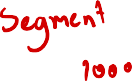 Segment
1000